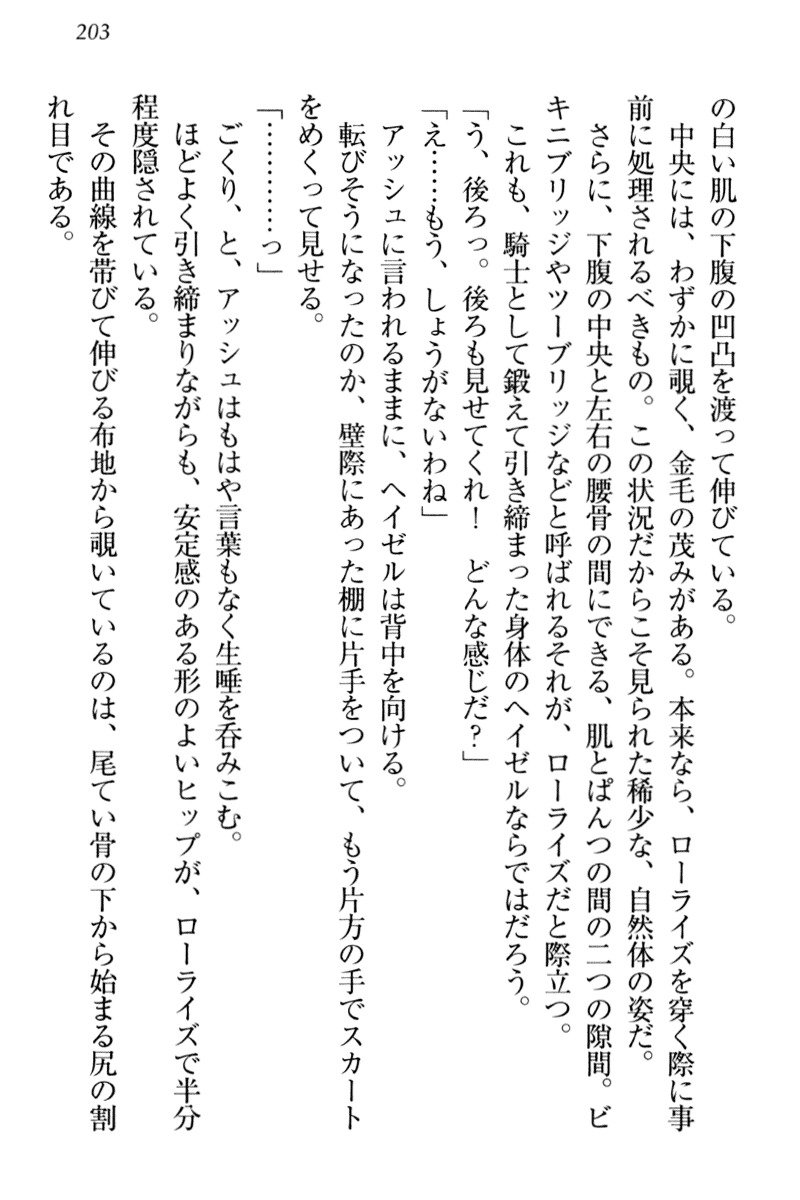 203
の白い肌の下腹の凹凸を渡って伸びている。
中央には、わずかに覗く、金毛の茂みがある。本来なら、ローライズを穿く際に事
前に処理されるべきもの。この状況だからこそ見られた稀少な、自然体の姿だ。
さらに、下腹の中央と左右の腰骨の間にできる、肌とぱんつの間の二つの隙間。ビ
キニブリッジやツーブリッジなどと呼ばれるそれが、ローライズだと際立つ。
これも、騎士として鍛えて引き締まった身体のヘイゼルならではだろう。
「う、後ろっ。後ろも見せてくれ！　どんな感じだ？」
「え……もう、しょうがないわね」
アッシュに言われるままに、ヘイゼルは背中を向ける。
転びそうになったのか、壁際にあった棚に片手をついて、もう片方の手でスカート
をめくって見せる。
「…………っ」
ごくり、と、アッシュはもはや言葉もなく生唾を呑みこむ。
ほどよく引き締まりながらも、安定感のある形のよいヒップが、ローライズで半分
程度隠されている。
その曲線を帯びて伸びる布地から覗いているのは、尾てい骨の下から始まる尻の割
れ目である。